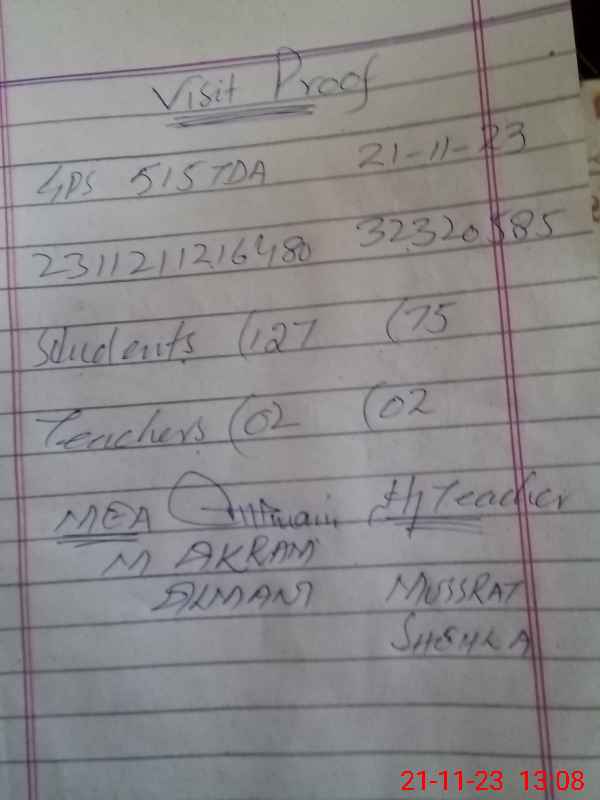 Visit Proof
GPS 515 TDA 21-11-23
2311211216480 32320585
Students (127 (75
Teachers (02 (02
MEA H/Teacher
M AKRAM
ALMANI MUSSRAT
SHEHLA
21-11-23 13:08